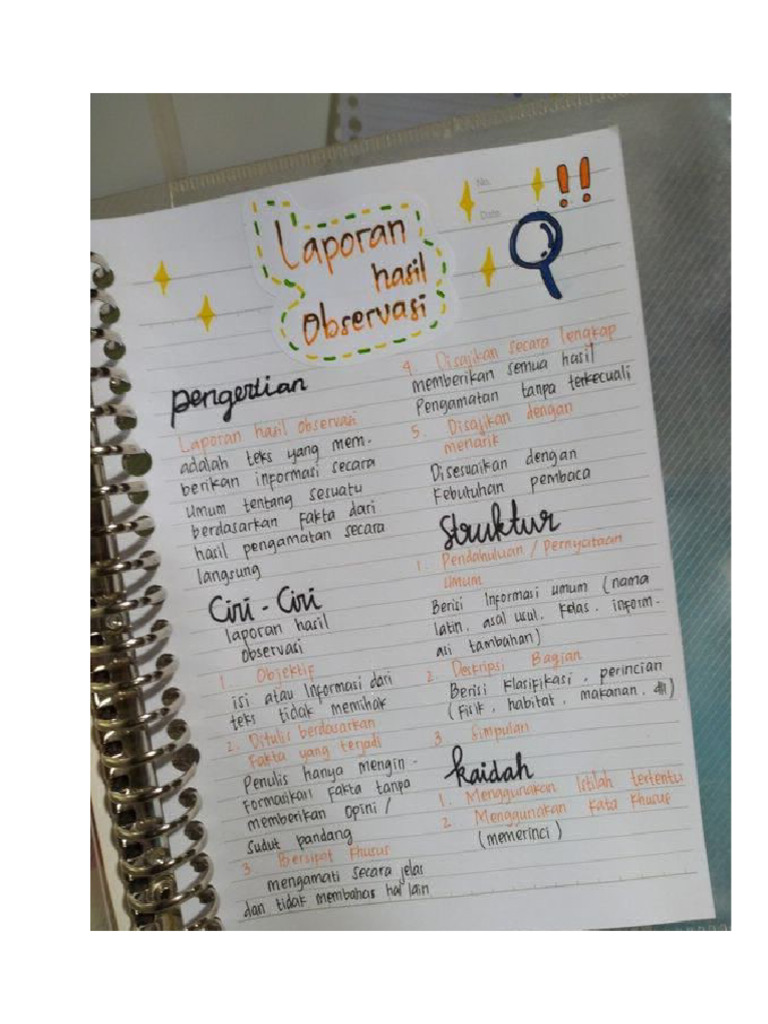 No.
Date
Laporan
hasil
Observasi
Pengertian
Laporan hasil observasi
adalah teks yang mem-
berikan informasi secara
umum tentang sesuatu
berdasarkan fakta dari
hasil pengamatan secara
langsung
Ciri - Ciri
laporan hasil
observasi
1. Objektif
isi atau informasi dari
teks tidak memihak
2. Ditulis berdasarkan
fakta yang terjadi
Penulis hanya mengin -
formasikan fakta tanpa
memberikan opini /
sudut pandang
3 Bersipat khusus
mengamati secara jelas
dan tidak membahas hal lain
4. Disajikan secara lengkap
memberikan semua hasil
Pengamatan tanpa terkecuali
5. Disajikan dengan
menarik
Disesuaikan dengan
kebutuhan pembaca
Struktur
1. Pendahuluan / Pernyataan
umum
Berisi informasi umum (nama
latin, asal usul, kelas, inform-
asi tambahan)
2. Deskripsi Bagian
Berisi klasifikasi, perincian
(fisik, habitat, makanan, dll)
3. Simpulan
Kaidah
1. Menggunakan istilah tertentu
2. Menggunakan kata khusus
(memerinci)